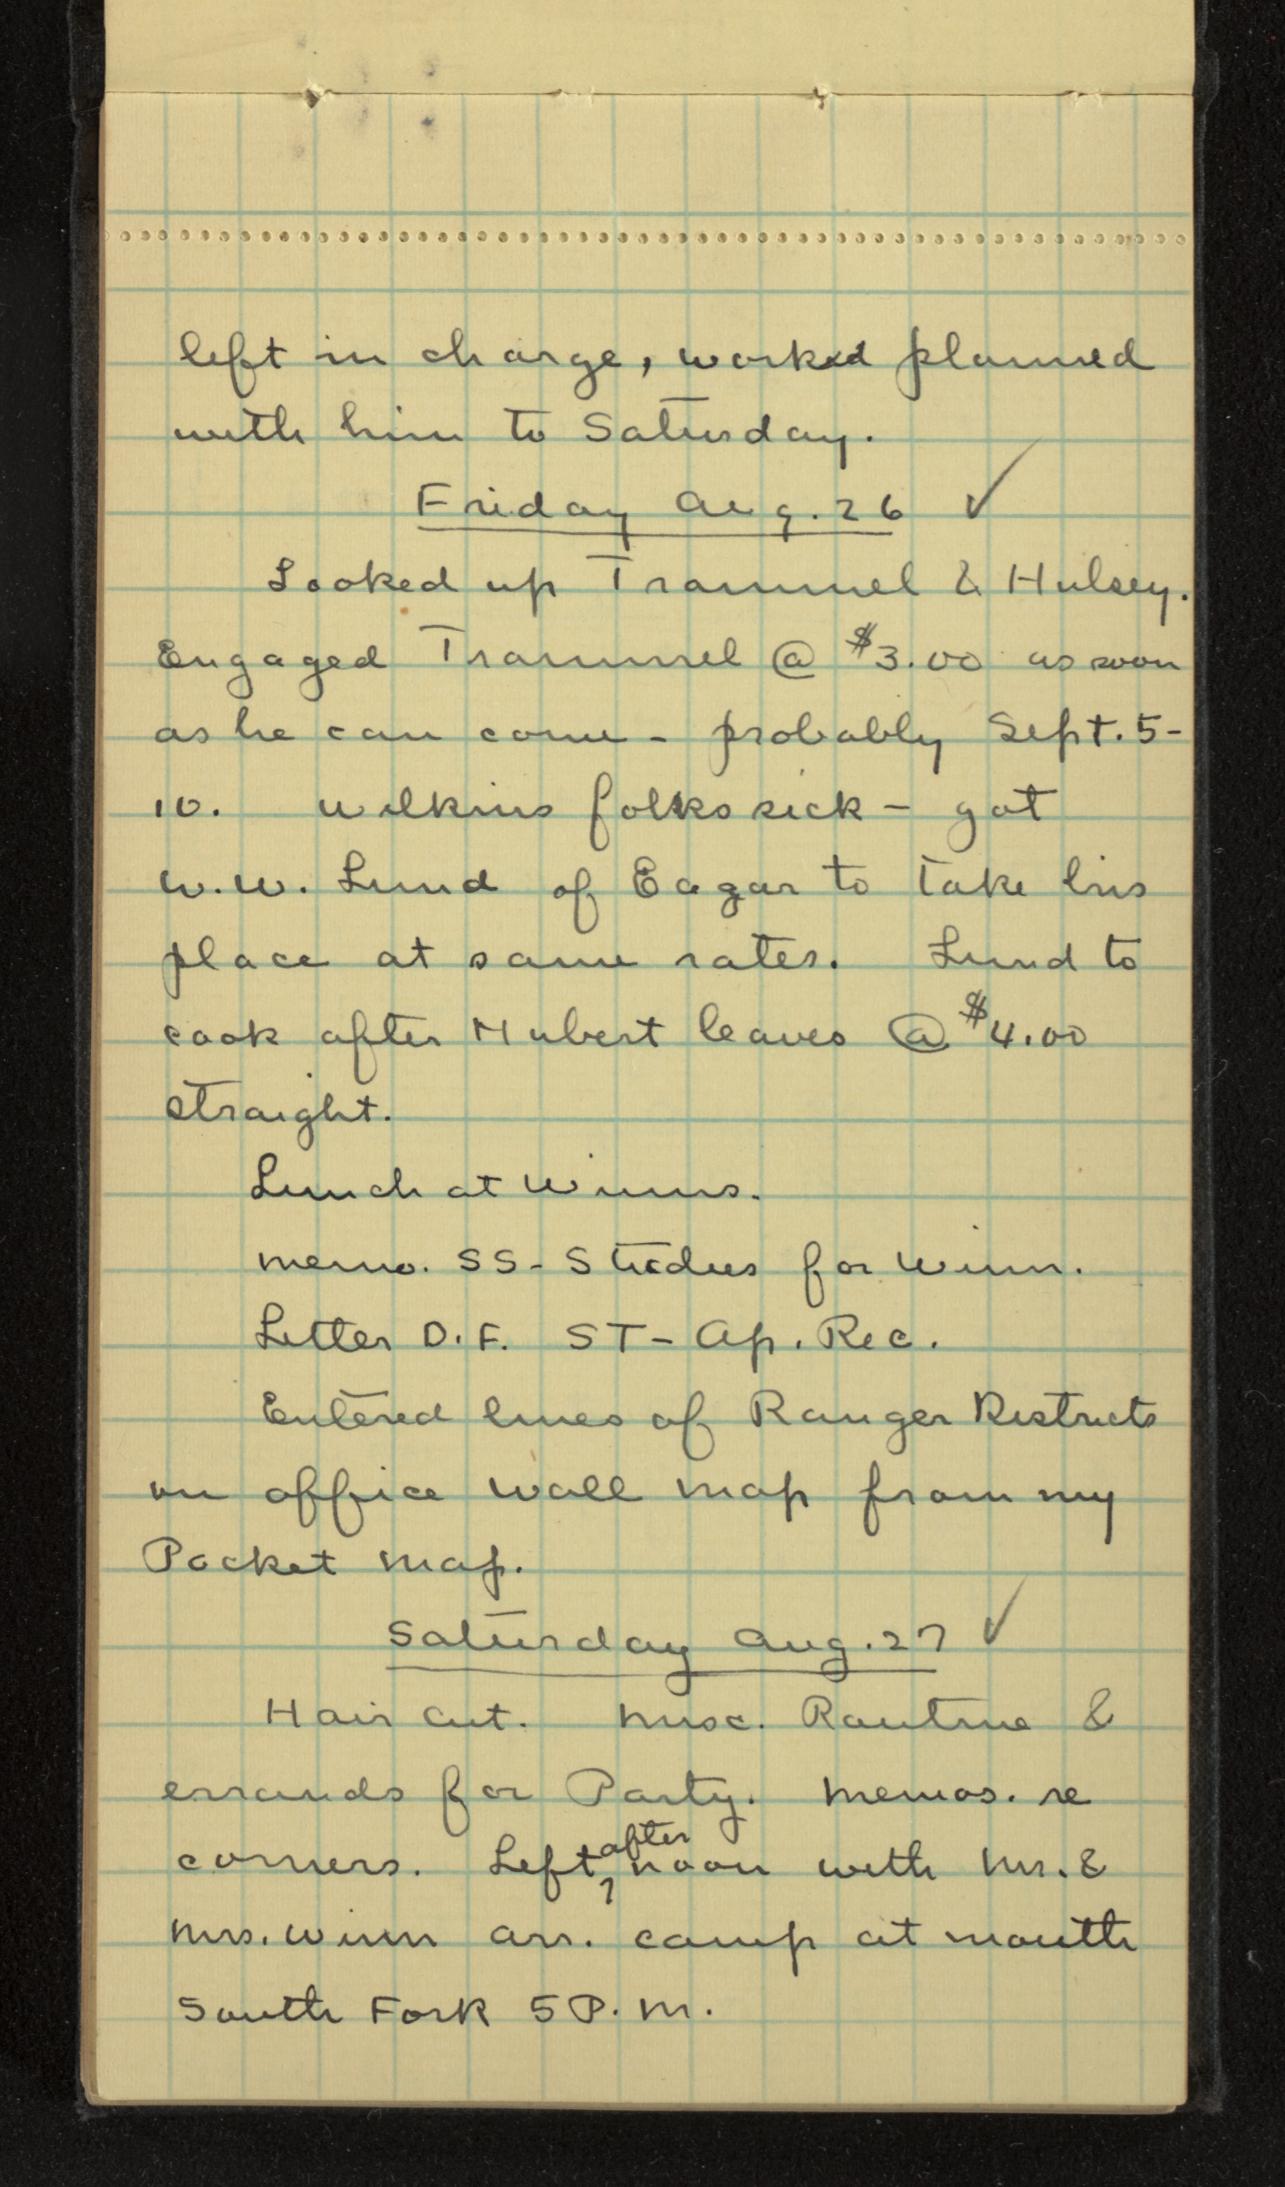 left in charge, worked planned
with him to Saturday.
Friday Aug. 26 ✓
Looked up Trammel & Hulsey.
Engaged Trammel @ $3.00 as soon
as he can come - probably Sept. 5-
10. Wilkins folks sick - got
W.W. Lund of Eagar to take his
place at same rates. Lund to
cook after Hubert leaves @ $4.00
straight.
Lunch at Winns.
Memo. SS - Studies for Winn.
Letter D.F. ST - Ap. Rec.
Entered lines of Ranger Districts
on office wall map from my
Pocket map.
Saturday Aug. 27 ✓
Hair cut. Misc. Routine &
errands for Party. Memos. re
corners. Left after noon with Mr. &
Mrs. Winn arr. camp at mouth
South Fork 5 P.M.